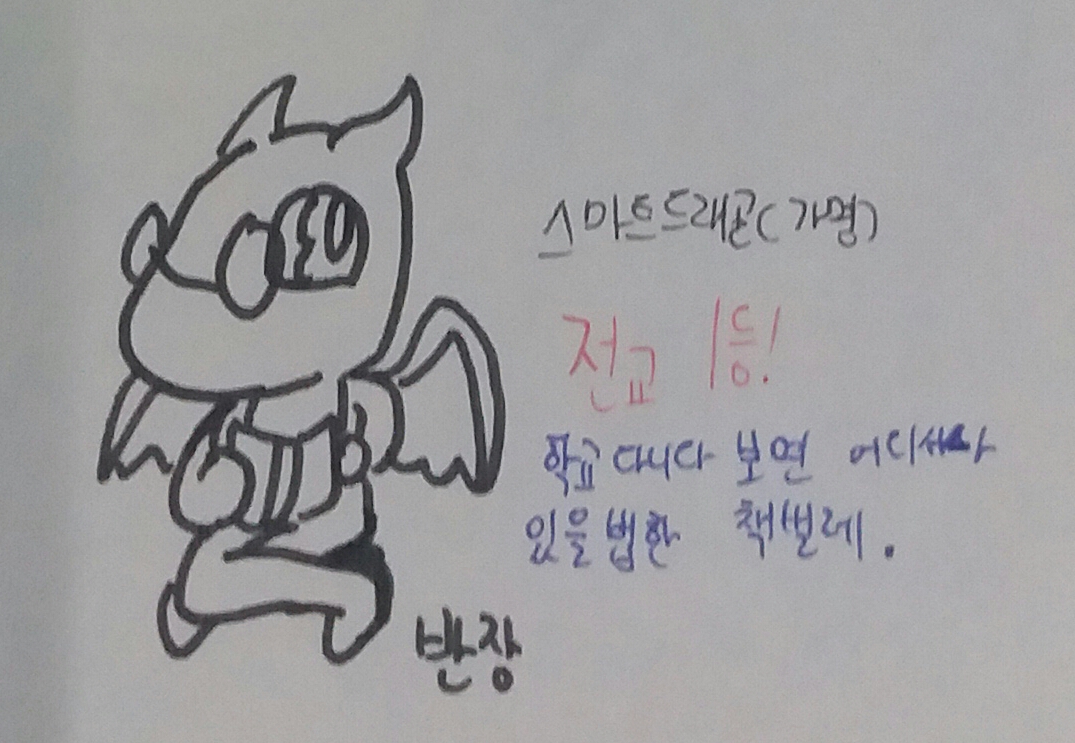 스마트드래곤(가명)
전교 1등!
학교 다니다 보면 어디서나
있을 법한 책벌레.
반장